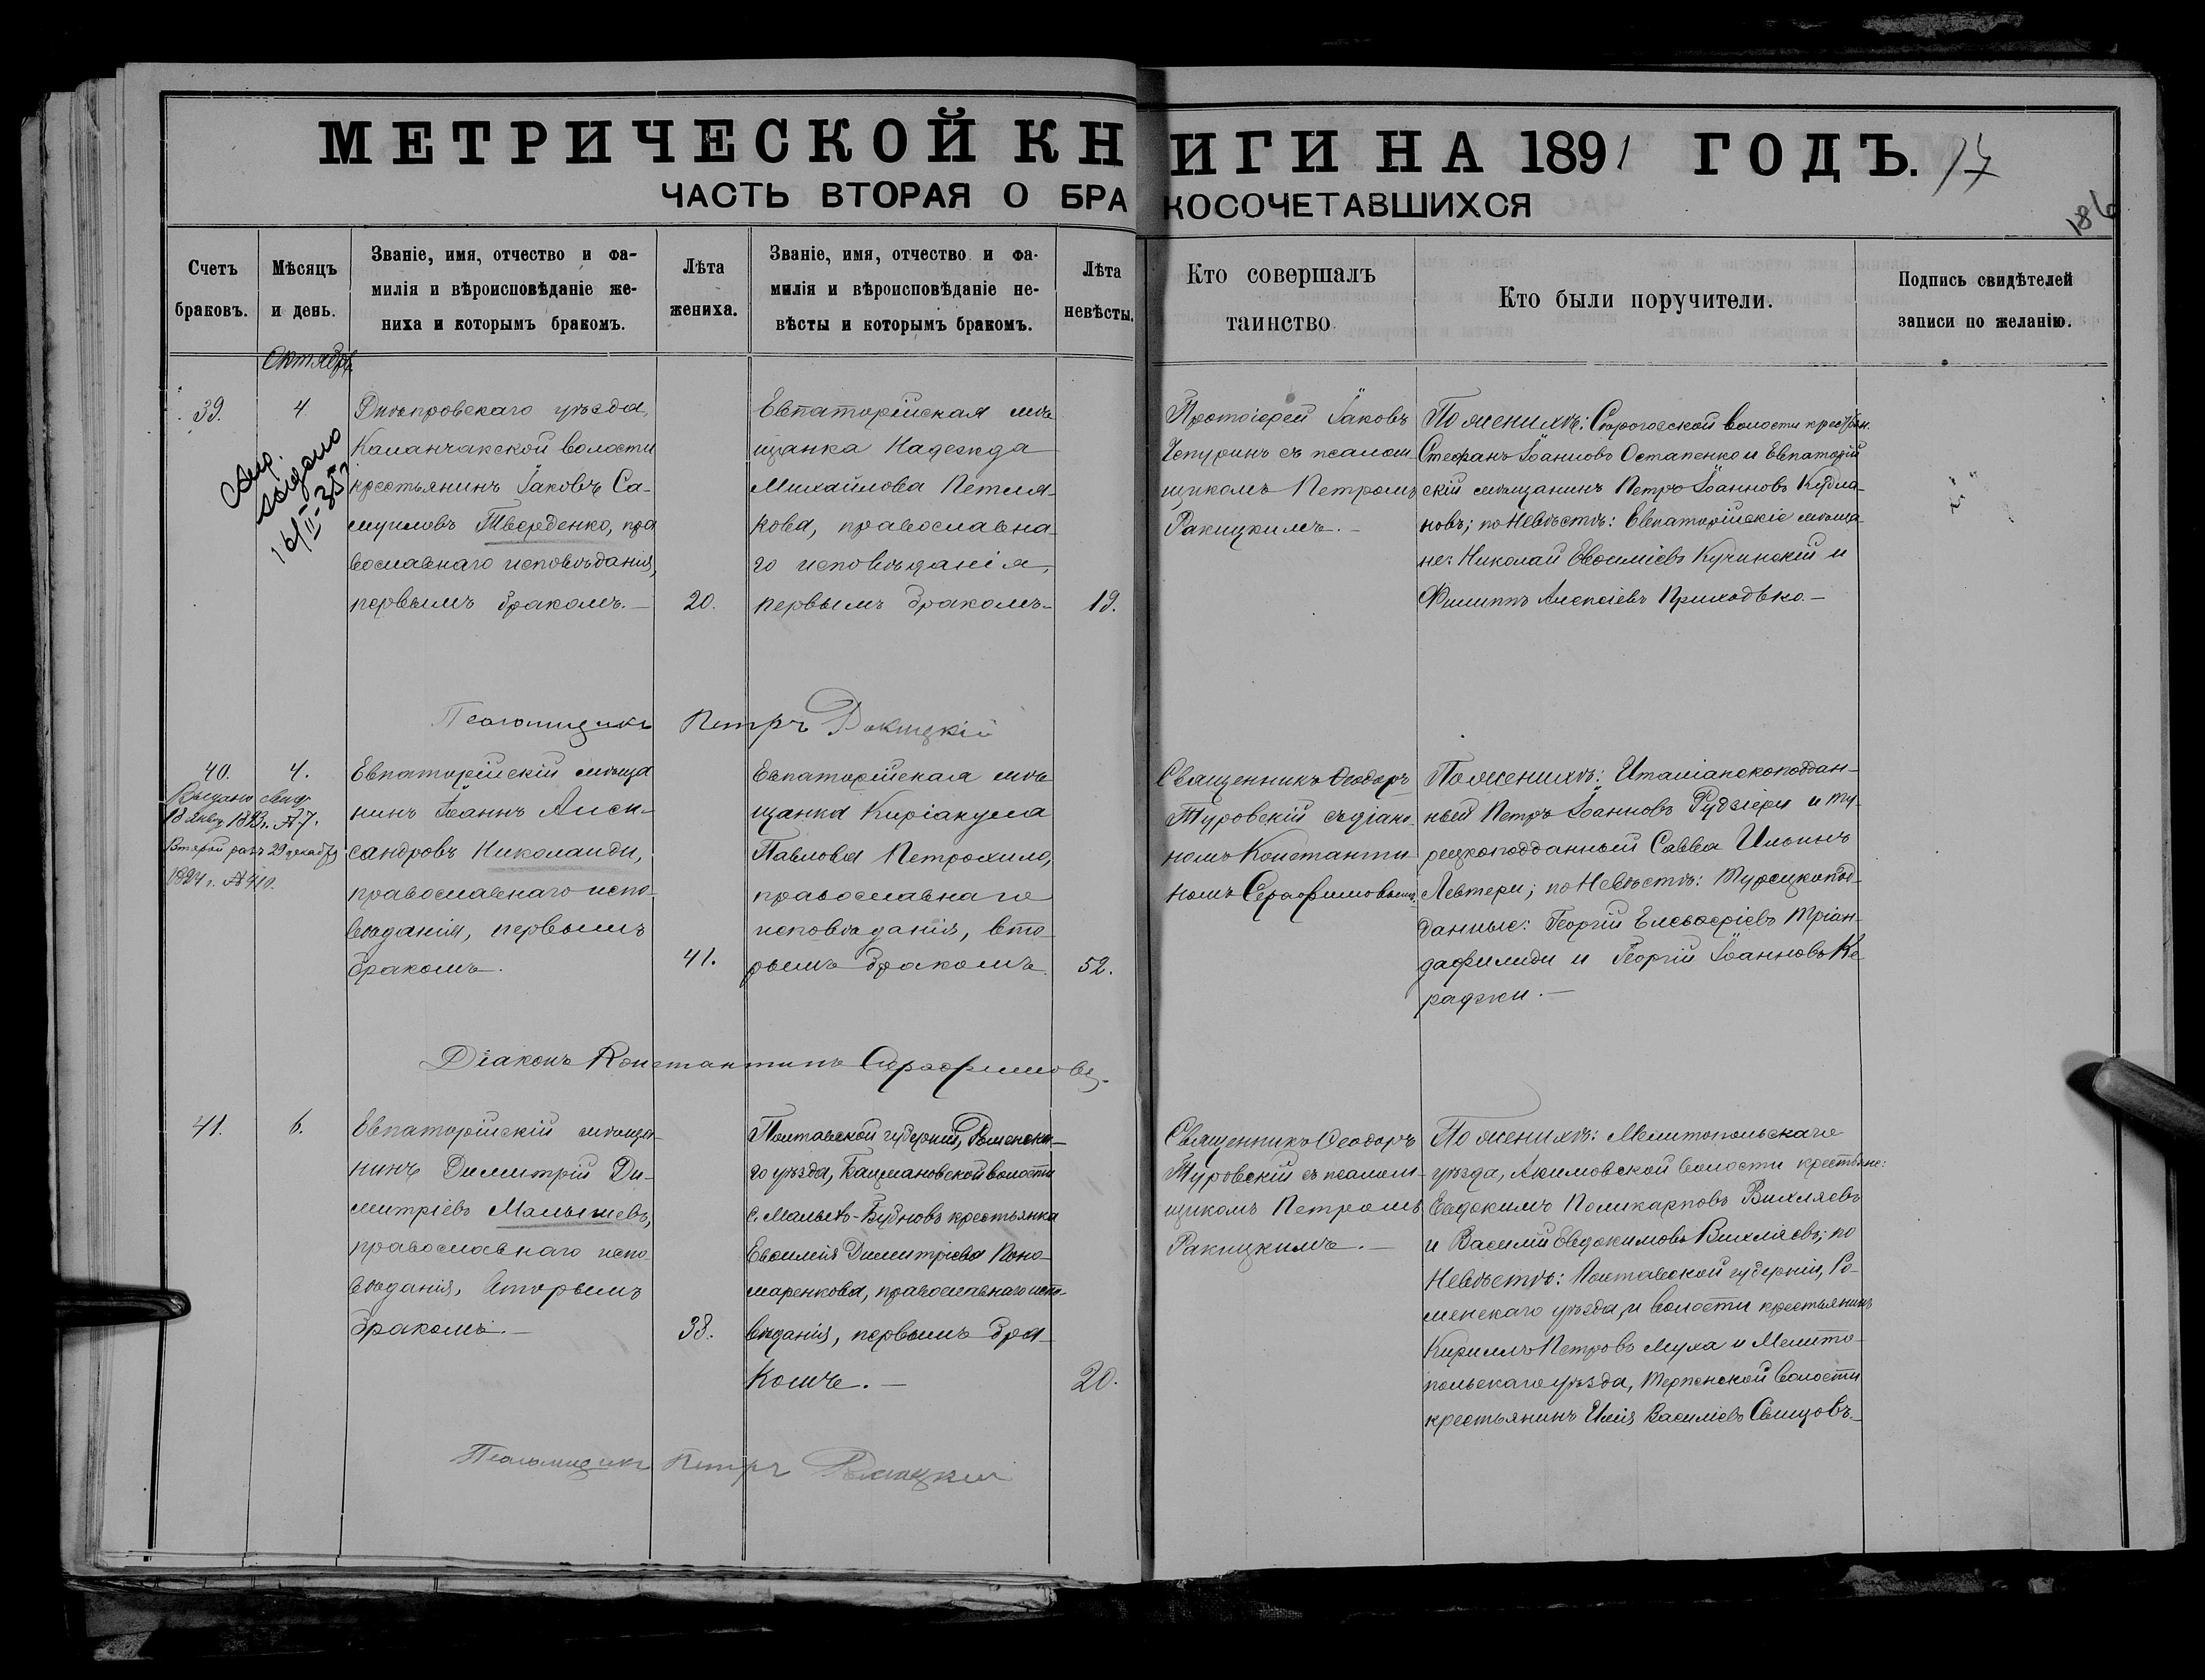 МЕТРИЧЕСКОЙ КНИГИ НА 1891 ГОДЪ. 17
186
ЧАСТЬ ВТОРАЯ О БРАКОСОЧЕТАВШИХСЯ
Счетъ
браковъ.
Мѣсяцъ
и день.
Званіе, имя, отчество и фа-
милія и вѣроисповѣданіе же-
ниха и которымъ бракомъ.
Лѣта
жениха.
Званіе, имя, отчество и фа-
милія и вѣроисповѣданіе не-
вѣсты и которымъ бракомъ.
Лѣта
невѣсты.
Кто совершалъ
таинство
Кто были поручители.
Подпись свидѣтелей
записи по желанію.
Октябрь
39.
4
выдано
16/II-35
Днѣпровскаго уѣзда,
Каланчакской волости
крестьянинъ Іаковъ Са-
муиловъ Твёрденко, пра
вославнаго исповѣданія,
первымъ бракомъ.—
20.
Евпаторійская мѣ
щанка Надежда
Михайлова Петля-
кова, православна-
го исповѣданія,
первымъ бракомъ-
19.
Протоіерей Іаковъ
Чепуринъ съ псалом-
щикомъ Петромъ
Ракицкимъ.—
По женихѣ: Сѣрогозской волости крестьян.
Стефанъ Іоанновъ Остапенко и Евпаторій
скій мѣщанинъ Петръ Іоанновъ Кудла-
новъ; по невѣстѣ: Евпаторійскіе мѣща
не: Николай Евѳиміевъ Кучинскій и
Филиппъ Алексіевъ Приходько.—
Псаломщикъ Петръ Ракицкій
40.
4.
Выдано свид.
18 Янв. 1893 г. № 7.
Второй разъ 29 декабря
1894 г. № 410.
Евпаторійскій мѣща
нинъ Іоаннъ Алек-
сандровъ Николаиди,
православнаго испо-
вѣданія, первымъ
бракомъ.
41.
Евпаторійская мѣ
щанка Киріакула
Павлова Петрохило,
православнаго
исповѣданія, вто-
рымъ бракомъ.
52.
Священникъ Ѳеодоръ
Туровскій съ діако-
номъ Константи-
номъ Серафимовымъ.
По женихѣ: Италіанскоподдан-
ный Петръ Іоанновъ Рудзіери и ту-
рецкоподданный Савва Ильинъ
Левтери; по невѣстѣ: Турецкопод-
данные: Георгій Елевѳеріевъ Тріан-
дафилиди и Георгій Іоанновъ Ке
раджи.—
Діаконъ Константинъ Серафимовъ.
41.
6.
Евпаторійскій мѣща-
нинъ Димитрій Ди-
митріевъ Малышевъ,
православнаго испо
вѣданія, вторымъ
бракомъ.—
38.
Полтавской губерніи, Роменска-
го уѣзда, Бацмановской волости
с. Малыхъ-Будновъ крестьянка
Евѳимія Димитріева Поно-
маренкова, православнаго испо-
вѣданія, первымъ бра-
комъ.—
20.
Священникъ Ѳеодоръ
Туровскій съ псалом-
щикомъ Петромъ
Ракицкимъ.—
По женихѣ: Мелитопольскаго
уѣзда, Акимовской волости крестьяне:
Евдокимъ Поликарповъ Вихляевъ
и Василій Евдокимовъ Вихляевъ; по
невѣстѣ: Полтавской губерніи, Ро-
менскаго уѣзда, и волости крестьянинъ
Кириллъ Петровъ Муха и Мелито-
польскаго уѣзда, Терпенской волости
крестьянинъ Илія Василіевъ Свищовъ.—
Псаломщикъ Петръ Ракицкій